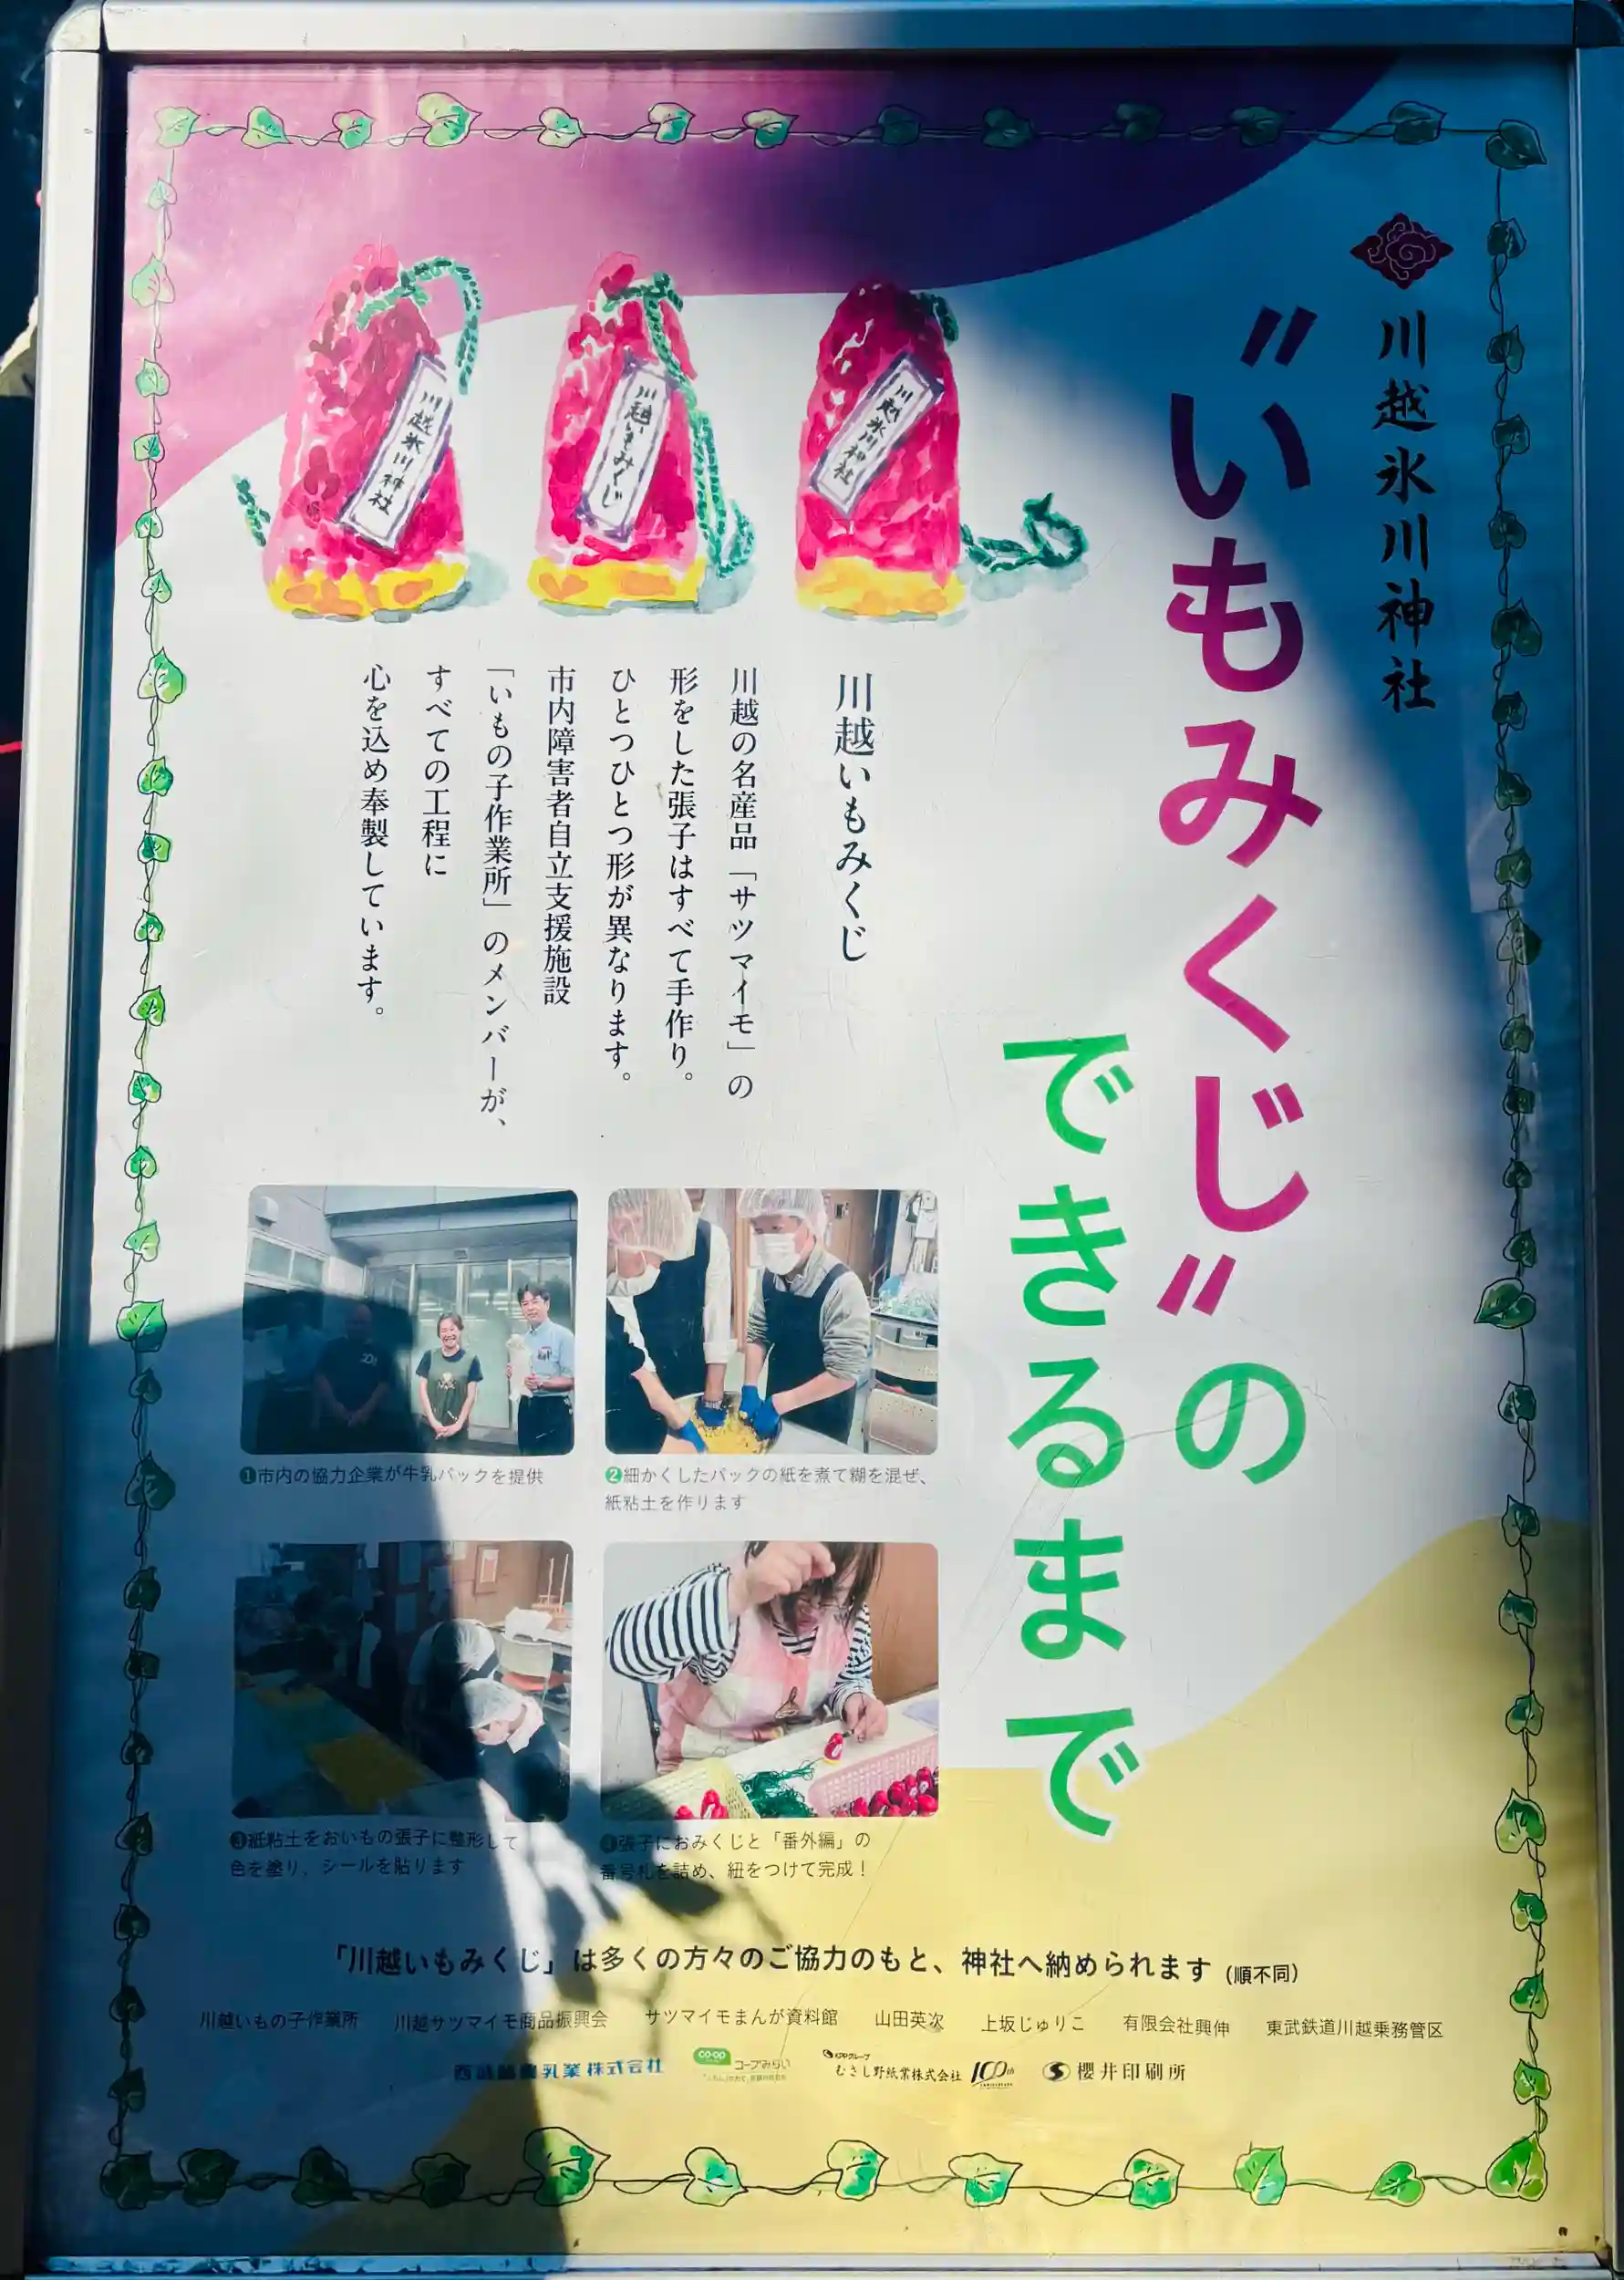 川越氷川神社
〝いもみくじ〟の
できるまで
川越氷川神社
川越いもみくじ
川越氷川神社
川越いもみくじ
川越の名産品「サツマイモ」の
形をした張子はすべて手作り。
ひとつひとつ形が異なります。
市内障害者自立支援施設
「いもの子作業所」のメンバーが、
すべての工程に
心を込め奉製しています。
❶市内の協力企業が牛乳パックを提供
❷細かくしたパックの紙を煮て糊を混ぜ、
紙粘土を作ります
❸紙粘土をおいもの張子に整形して
色を塗り、シールを貼ります
❹張子におみくじと「番外編」の
番号札を詰め、紐をつけて完成！
「川越いもみくじ」は多くの方々のご協力のもと、神社へ納められます（順不同）
川越いもの子作業所 川越サツマイモ商品振興会 サツマイモまんが資料館 山田英次 上坂じゅりこ 有限会社興伸 東武鉄道川越乗務管区
西武酪農乳業株式会社 co・op コープみらい KPPグループ むさし野紙業株式会社 100th 櫻井印刷所